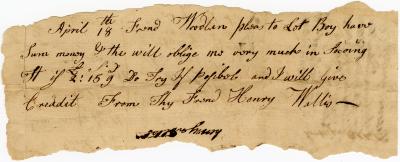 April th 18 Frend Woodlin pleas to Let Boy have
Sum money & the will oblige me very much in Saving
it if £2:15:9 Do Try if Posibole and I will give
Creddit From Thy Frend Henry Willis